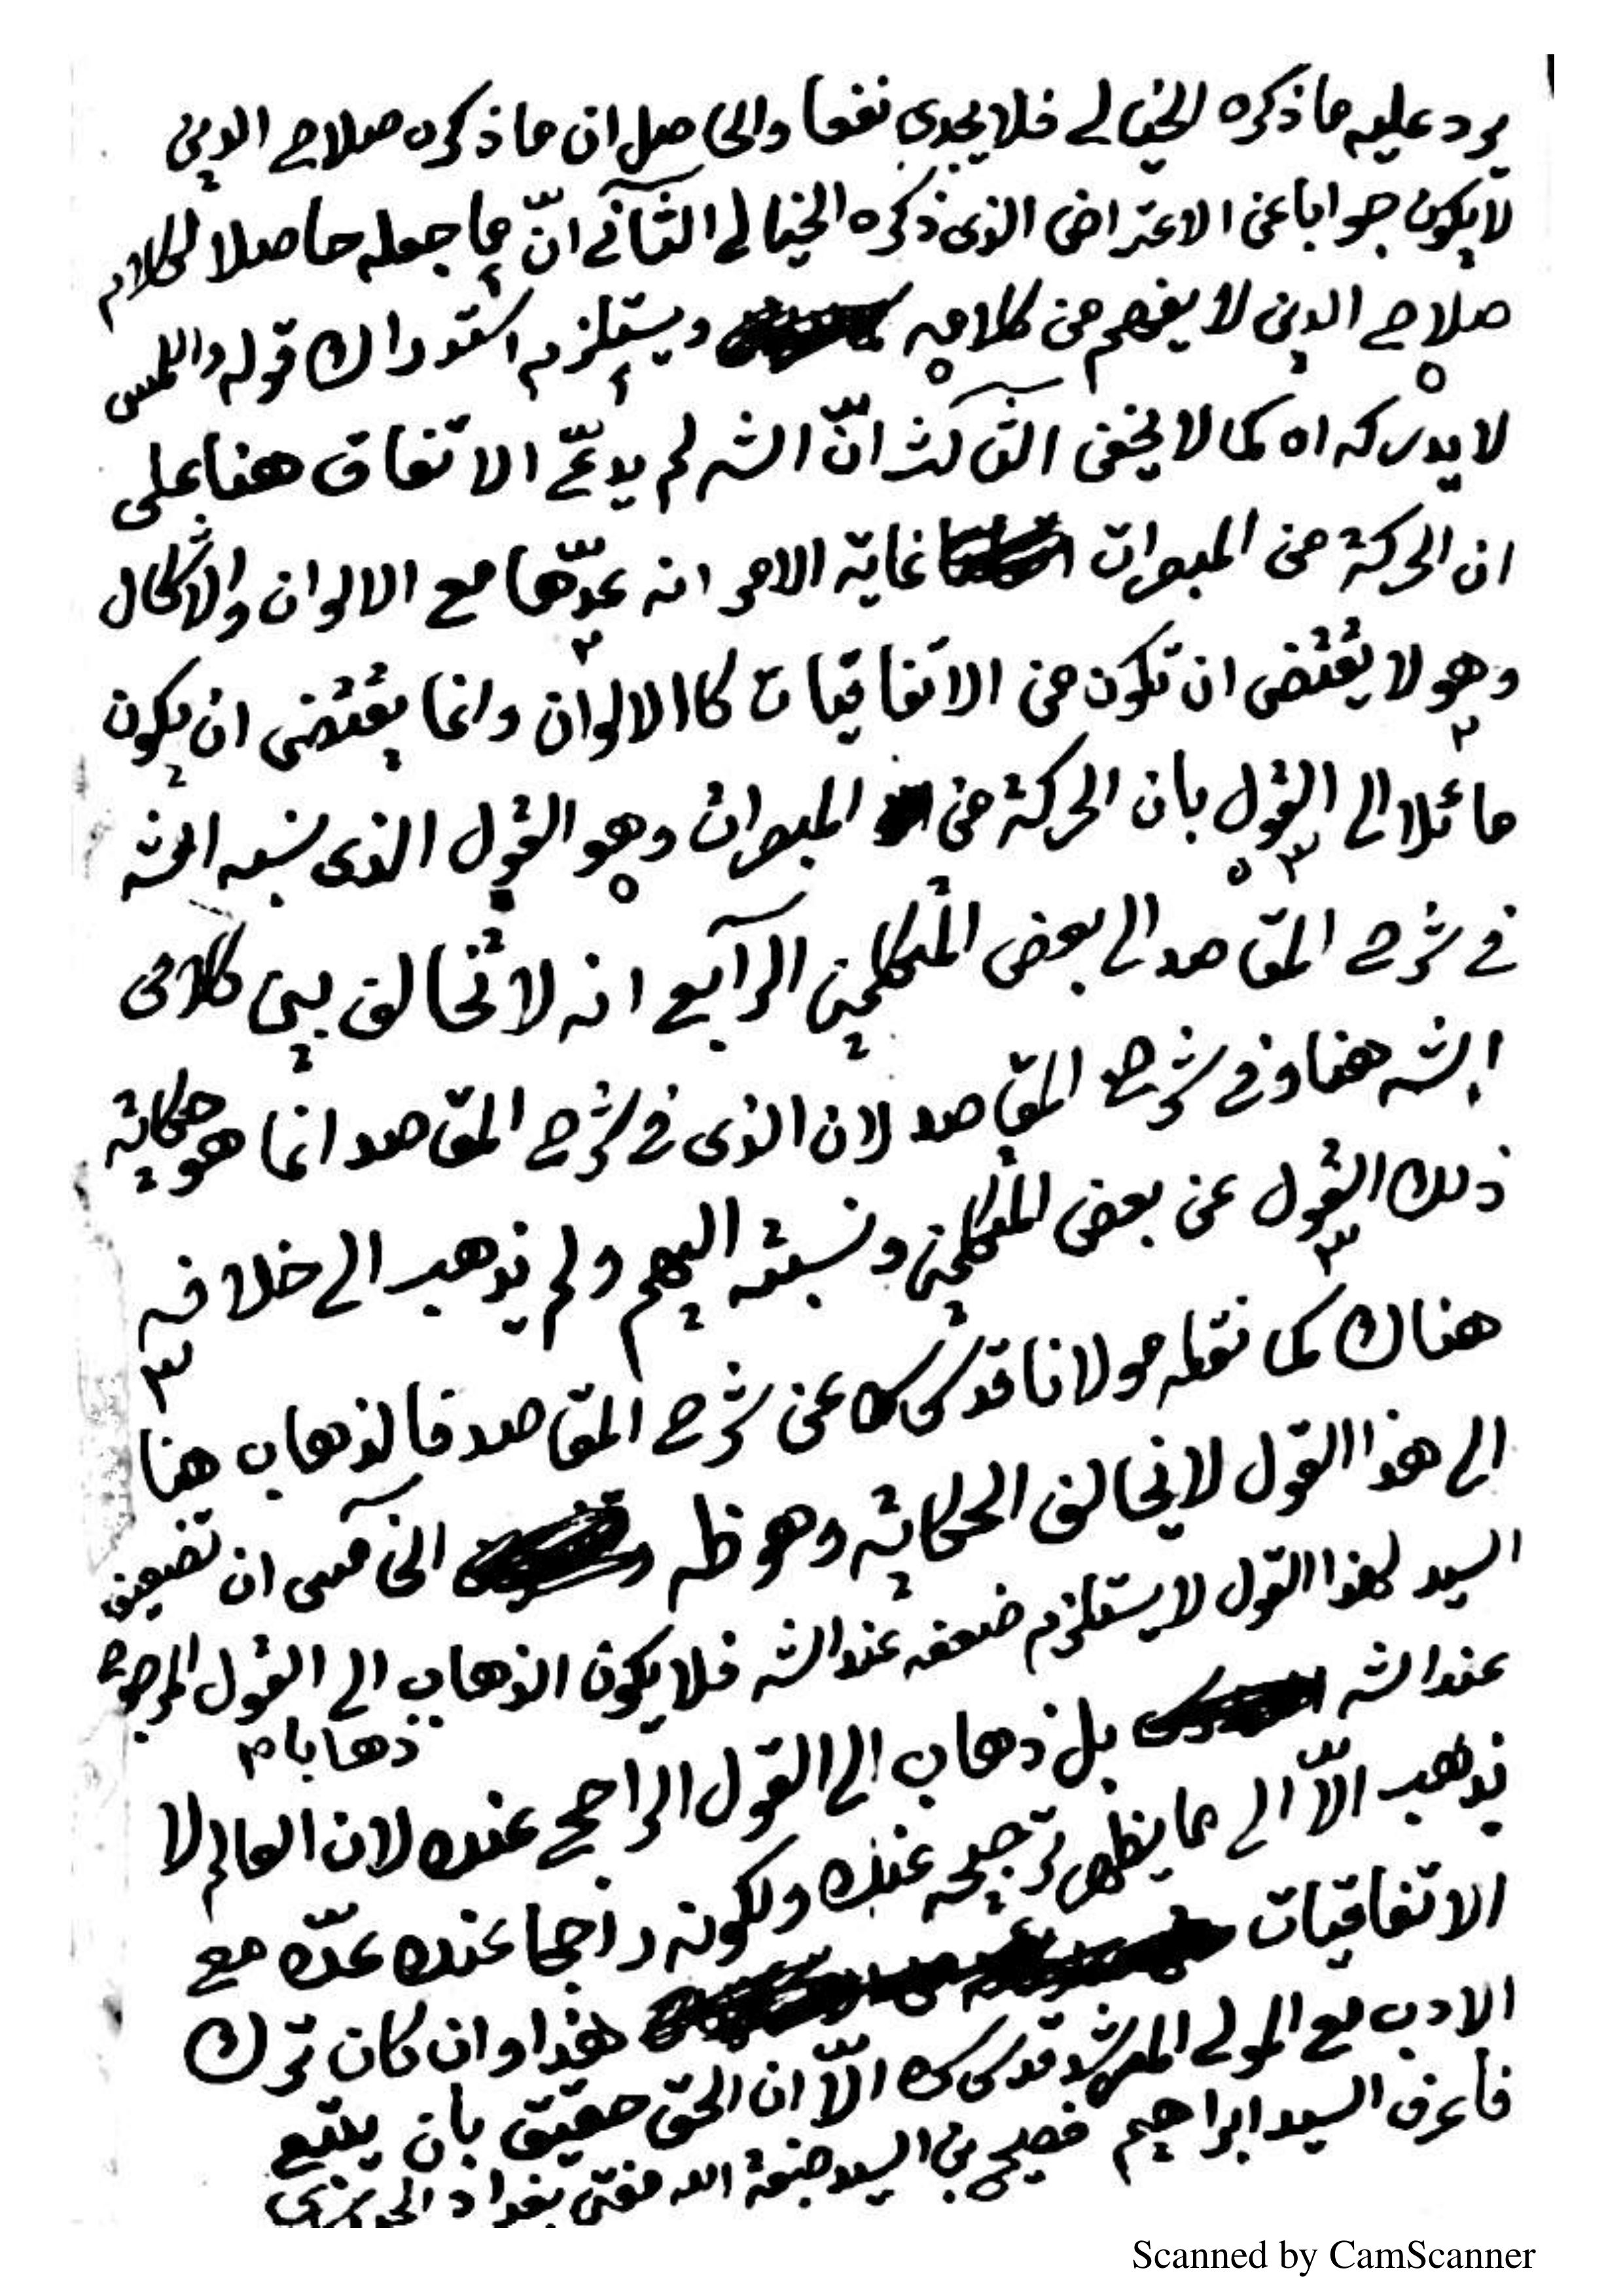 يرد عليه ما ذكره الخيالي فلا يجدى نفعا والحاصل ان ما ذكره صلاح الدين
لا يكون جوابا عن الاعتراض الذى ذكره الخيالي الثاني انّ ما جعله حاصلا لكلام
صلاح الدين لا يفهم من كلامه ويستلزم استدراك قوله واللمس
لا يدركه اه كما لا يخفى الثالث انّ الشه لم يدعّ الاتفاق هنا على
ان الحركة من المبصرات غاية الامر انه عدّها مع الالوان والاشكال
وهو لا يقتضى ان تكون من الاتفاقيات كالالوان وانما يقتضى ان يكون
مائلا الى القول بان الحركة من المبصرات وهو القول الذى نسبه الشه
في شرح المقاصد الى بعض المتكلمين الرابع انه لا تخالف بين كلامى
الشه هنا وفي شرح المقاصد لان الذى في شرح المقاصد انما هو حكاية
ذلك القول عن بعض المتكلمين ونسبته اليهم ولم يذهب الى خلافه
هناك كما نقله مولانا قدس سره عن شرح المقاصد فالذهاب هنا
الى هذا القول لا يخالف الحكاية وهو ظه الخامس ان تضعيف
السيد لهذا القول لا يستلزم ضعفه عند الشه فلا يكون الذهاب الى القول المرجوح
ذهابا م
عند الشه بل ذهاب الى القول الراجح عنده لان العالم لا
يذهب الّا الى ما يظهر ترجيحه عنده ولكونه راجحا عنده عدّه مع
الاتفاقيات هذا وان كان ترك
الادب مع المولى المرشد قدس سره الّا ان الحق حقيق بان يتبع
فاعرف السيد ابراهيم فصيح بن السيد صبغة الله مفتى بغداد الحيدرى
Scanned by CamScanner